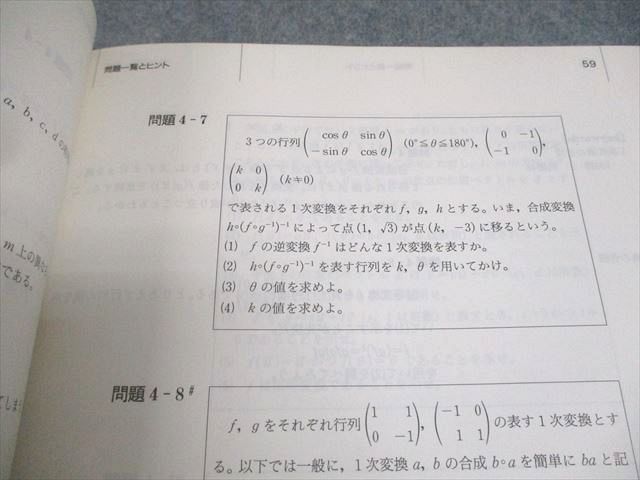 問題一覧とヒント
59
a, b, c, d
問題 4-7
3つの行列 ( cos θ sin θ
− sin θ cos θ ) (0°≦θ≦180°), ( 0 −1
−1 0 ),
( k 0
0 k ) (k≠0)
で表される1次変換をそれぞれ f, g, h とする。いま，合成変換
h∘(f∘g⁻¹)⁻¹ によって点(1, √3)が点(k, −3)に移るという。
(1) f の逆変換 f⁻¹ はどんな1次変換を表すか。
(2) h∘(f∘g⁻¹)⁻¹ を表す行列を k, θ を用いてかけ。
(3) θ の値を求めよ。
(4) k の値を求めよ。
m 上の
である。
てしま
問題 4-8#
f, g をそれぞれ行列 ( 1 1
0 −1 ), ( −1 0
1 1 ) の表す1次変換とす
る。以下では一般に，1次変換 a, b の合成 b∘a を簡単に ba と記